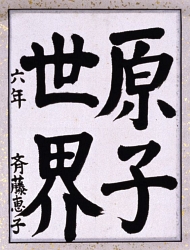 原子
世界
六年
斉藤恵子